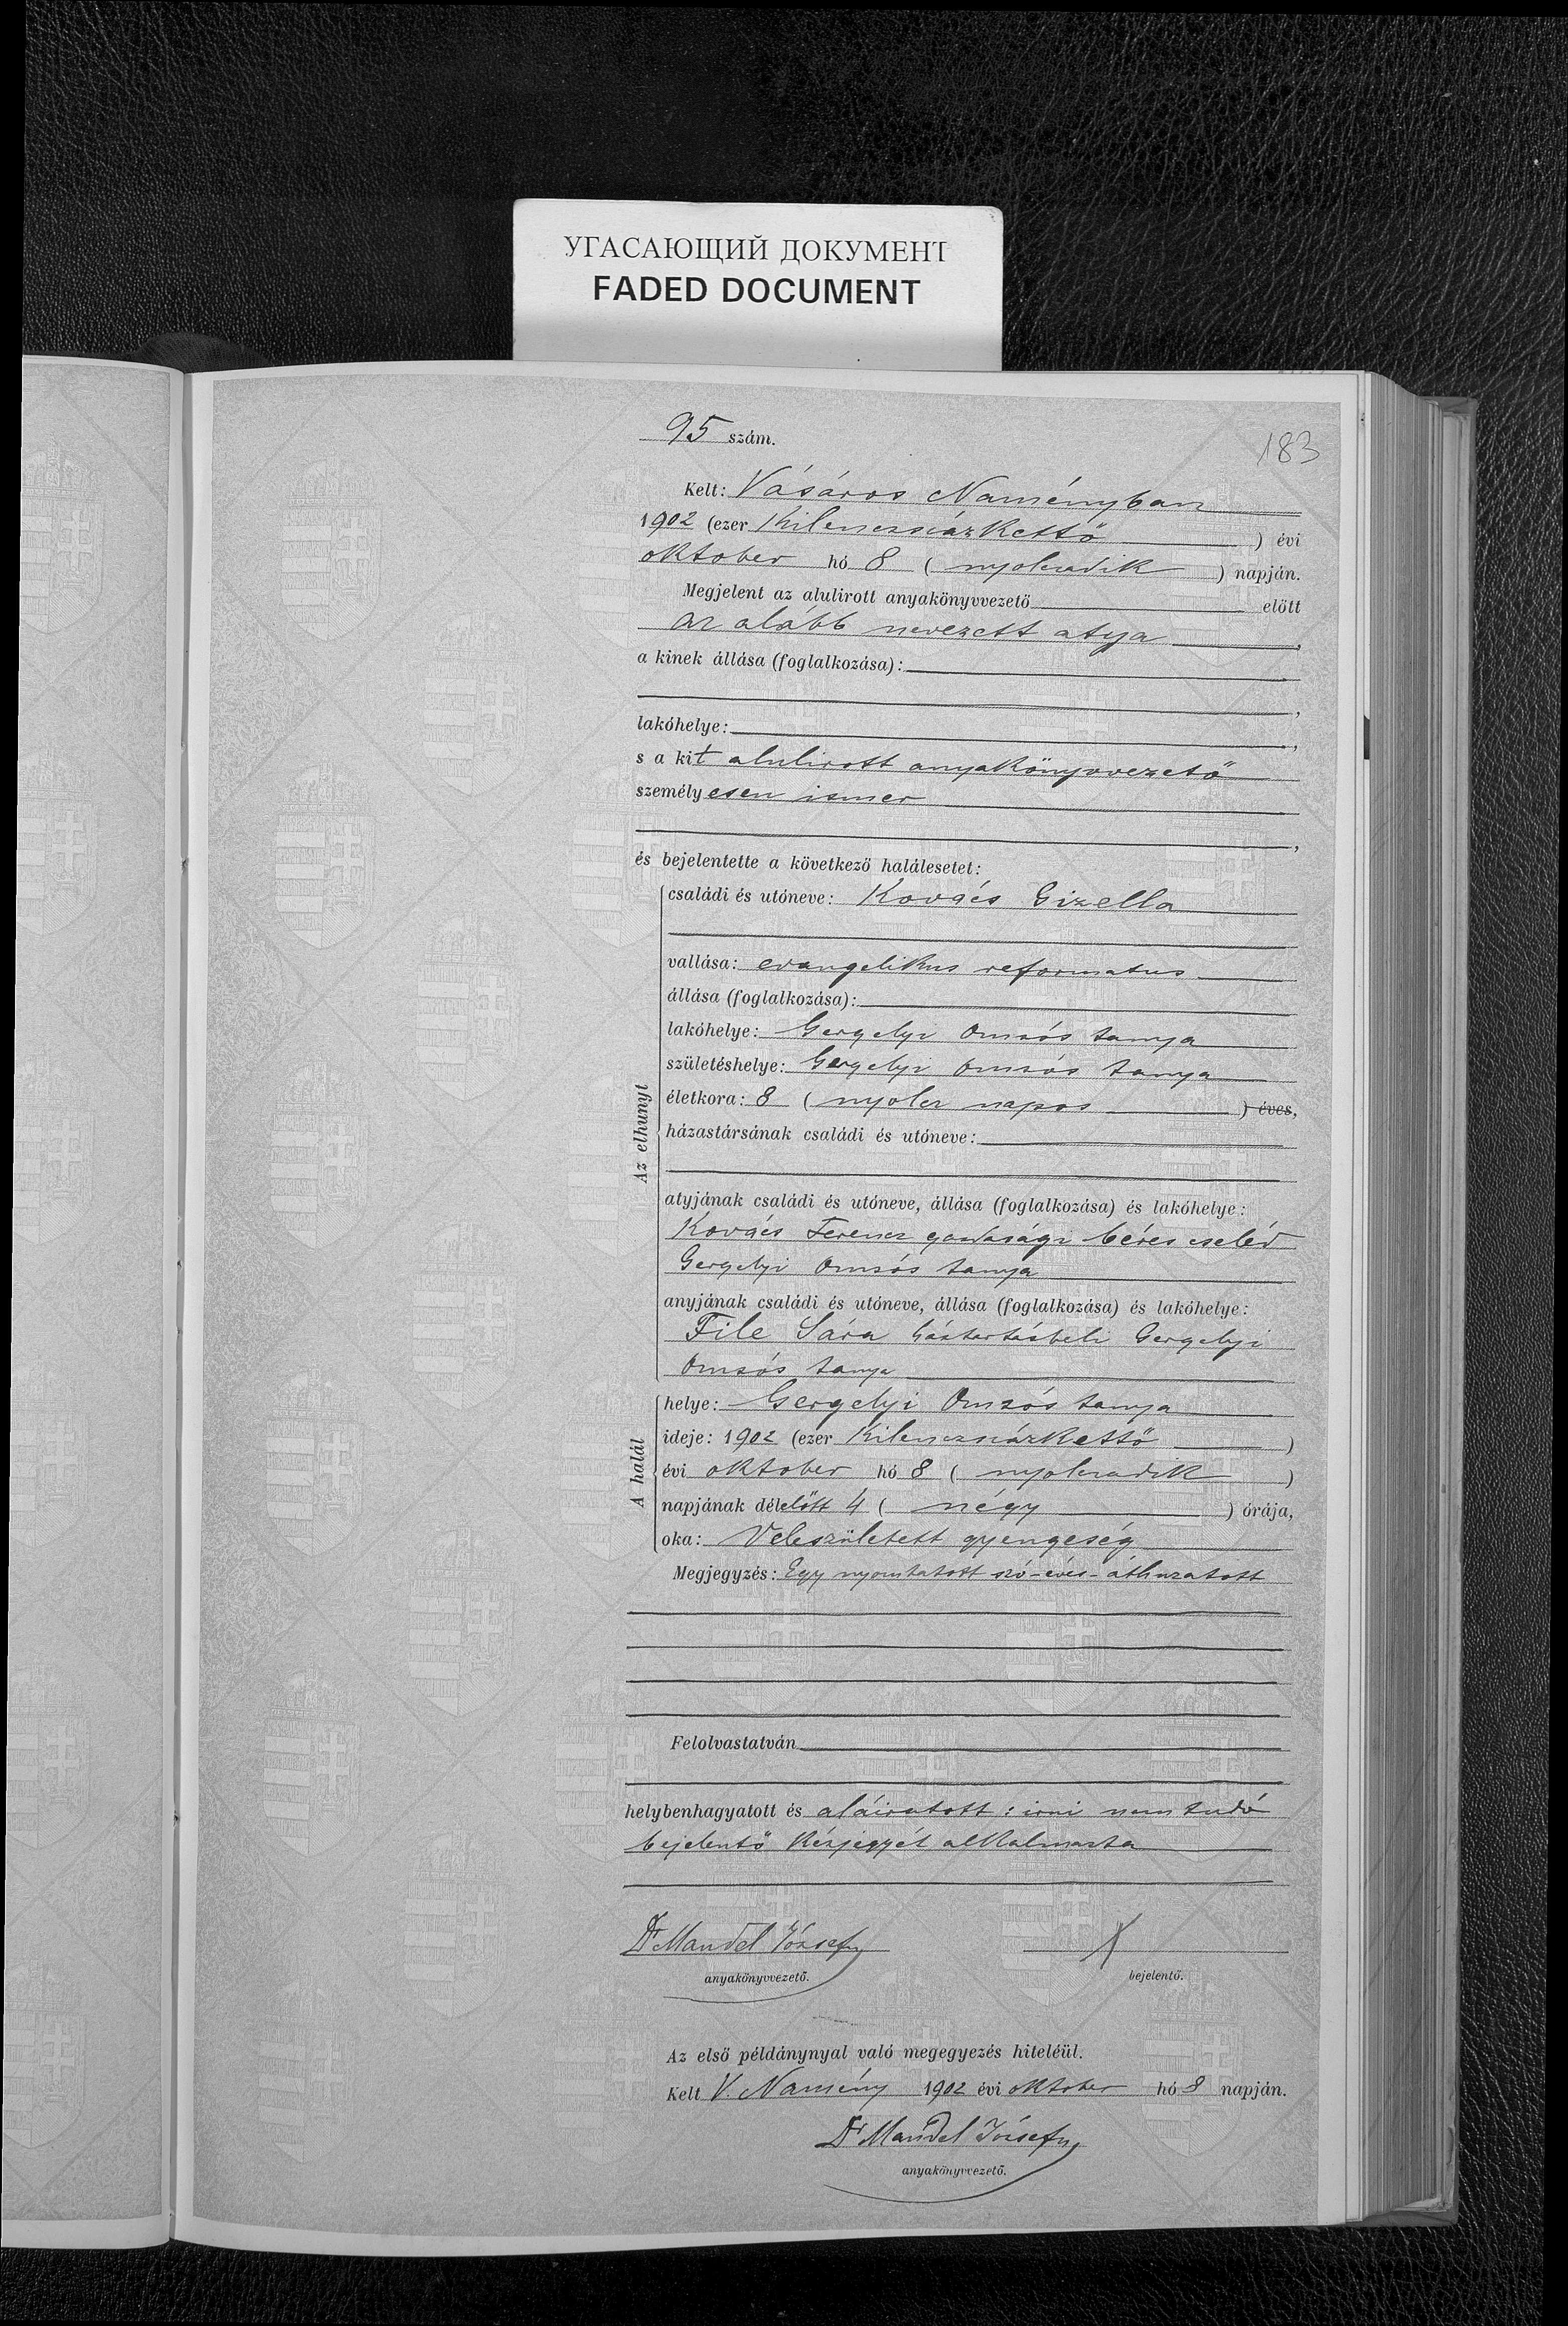 УГАСАЮЩИЙ ДОКУМЕНТ
FADED DOCUMENT
183
95 szám.
Kelt: Vásáros Naményban
1902 (ezer kilenczszázkettő ) évi
oktober hó 8 ( nyolczadik ) napján.
Megjelent az alulirott anyakönyvvezető előtt
az alább nevezett atya,
a kinek állása (foglalkozása):
,
lakóhelye: ,
s a kit alulirott anyakönyvvezető
személyesen ismer
,
és bejelentette a következő halálesetet:
Az elhunyt
családi és utóneve: Kovács Gizella
vallása: evangelikus reformatus
állása (foglalkozása):
lakóhelye: Gergelyi Omsós tanya
születéshelye: Gergelyi Omsós tanya
életkora: 8 ( nyolcz napos ) éves,
házastársának családi és utóneve:
atyjának családi és utóneve, állása (foglalkozása) és lakóhelye:
Kovács Ferencz gazdasági béres cseléd
Gergelyi Omsós tanya
anyjának családi és utóneve, állása (foglalkozása) és lakóhelye:
File Sára háztartásbeli Gergelyi
Omsós tanya
A halál
helye: Gergelyi Omsós tanya
ideje: 1902 (ezer kilenczszázkettő )
évi oktober hó 8 ( nyolczadik )
napjának délelőtt 4 ( négy ) órája,
oka: Veleszületett gyengeség
Megjegyzés: Egy nyomtatott szó -éves- áthuzatott
Felolvastatván
helybenhagyatott és aláiratott: irni nem tudó
bejelentő kézjegyét alkalmazta
Dr Mandel József X
anyakönyvvezető. bejelentő.
Az első példánynyal való megegyezés hiteléül.
Kelt V. Namény 1902 évi oktober hó 8 napján.
Dr Mandel József
anyakönyvvezető.